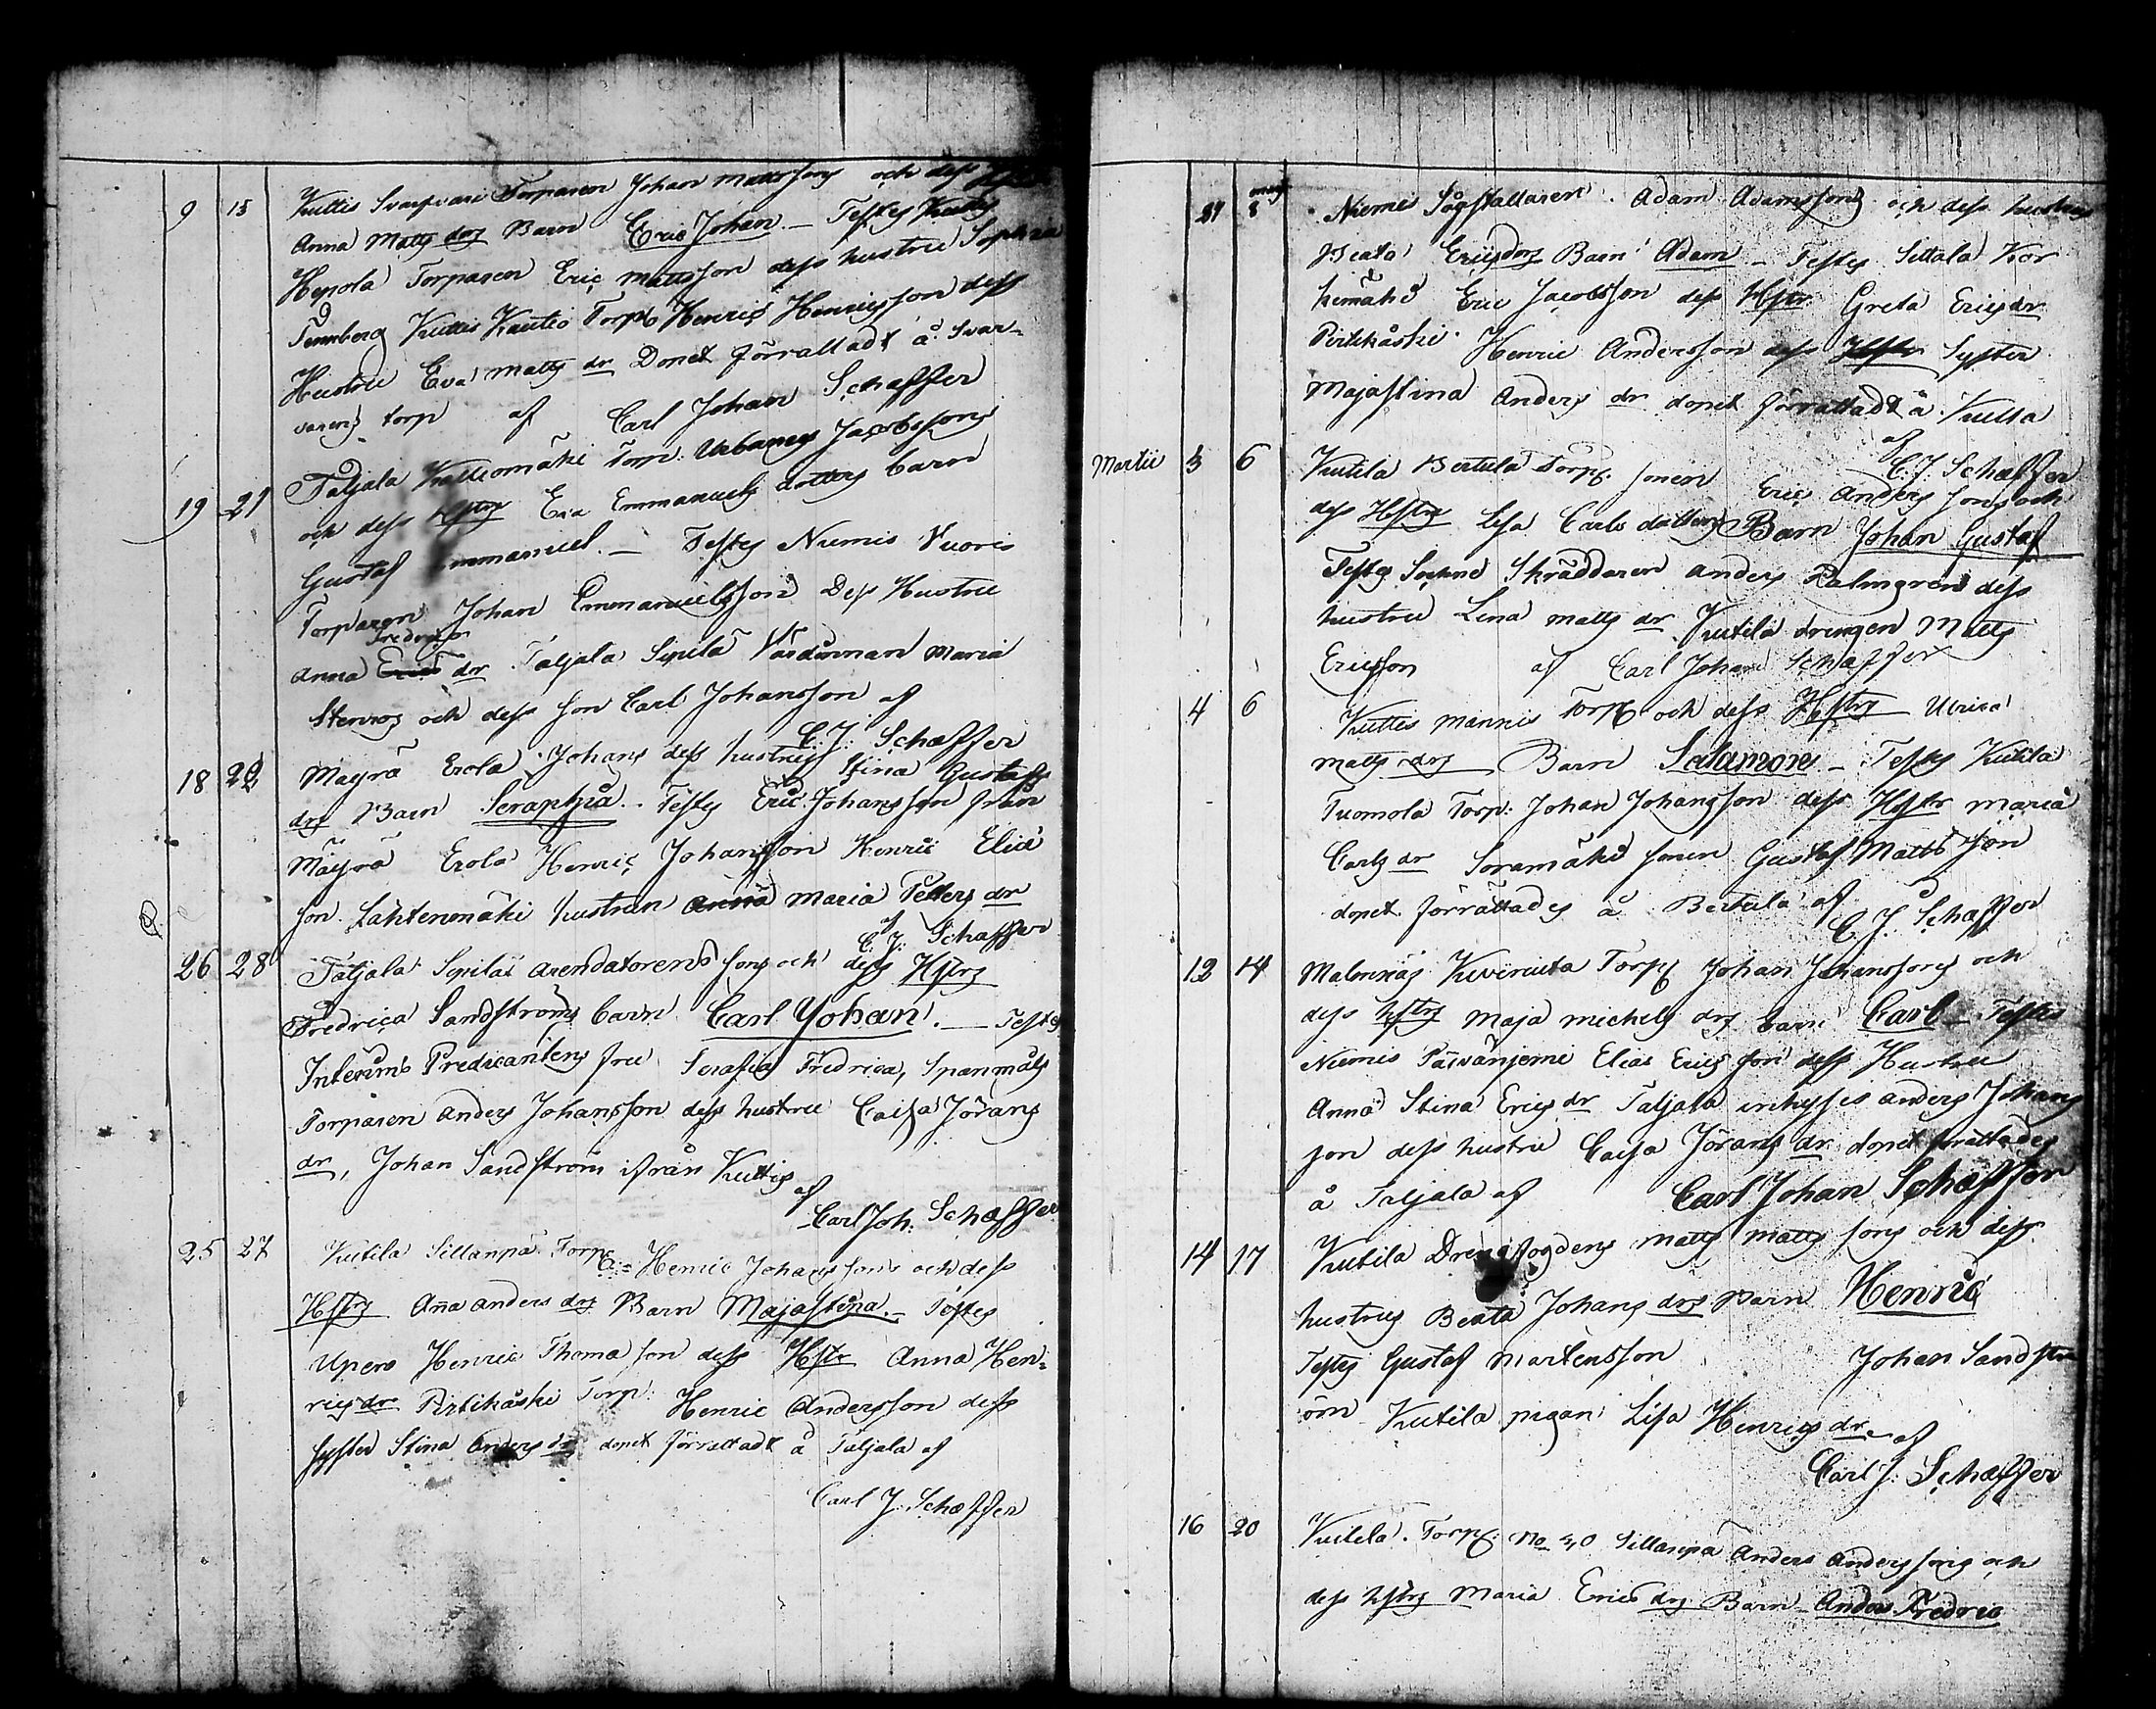 9 13 Kuttis Svarfvari Torparen Johan Mattssons och dess Hstr
Anna Matts drs Barn Eric Johan — Testes Kuttis
Hepola Torparen Eric Mattsson dess hustru Sophia
Tennberg Kuttis Kautio Torp Henric Henricsson dess
Hustru Eva Matts dr Dopet förrättadt å Svar-
varens torp af Carl Johan Schæffer
19 21 Taljala Kalliomäki Torp: Urbanus Jacobssons
och dess Hstrs Eva Emmanuels dotters barn
Gustaf Emmanuel. — Testes Niemis Vuoris
Torparen Johan Emmanuelsson Dess Hustru
Fredrics
Anna Erics dr Taljala Sipilä Värdinnan Maria
Stenros och dess son Carl Johansson af
C. J. Schæffer
18 22 Mäyrä Erola Johans dess hustrus Stina Gustafs
drs Barn Seraphia. Testes Eric Johansson från
Mäyrä Erola Henric Johansson Henric Elia
son. Lähtenmäki hustrun Anna Maria Petters dr
af C. J. Schæffer
26 28 Taljala Sipilä arendatorens sons och dess Hstrs
Fredrica Sandströms barn Carl Johan. — Testes
Interims Predicantens fru Serafia Fredrica, Spanmåls
Torparen Anders Johansson dess hustru Caisa Jörans
dr, Johan Sandström ifrån Kuttis
af
Carl Joh. Schæffer
25 27 Kutila Sillanpä Torp: Henric Johanssons och dess
Hstrs Anna Anders drs Barn Majastina. — Testes
Upero Henric Thomason dess Hstr Anna Hen-
rics dr Pirtikåski Torp: Henric Andersson dess
syster Stina Anders dr dopet förrättadt å Taljala af
Carl J. Schæffer
29 mars 8 Niemi Sågställaren Adam Adamssons och dess hustrus
Beata Ericsdrs Barn Adam — Testes Sittala Kor
kemäki Eric Jacobsson dess Hstr Greta Ericsdr
Pirtikåski Henric Andersson dess Hstr Syster
Majastina Anders dr dopet förrättadt å Kutila
af
C. J. Schæffer
Martii 3 6 Kutila Bertula Torp. sonen Eric Anders sons och
dess Hstrs Lisa Carls dotters Barn Johan Gustaf
Testes Sockne Skräddaren Anders Palmgren dess
hustru Lena Matts dr Kutila drengen Matts
Ericsson af Carl Johan Schæffer
4 6 Kuttis Mannis Torp och dess Hstrs Ulrica
Matts drs Barn Salamon — Testes Kutila
Tuomola Torp: Johan Johansson dess Hstr Maria
Carls dr Soramäki sonen Gustaf Matts son
dopet förrättades å Bertula af
C. J. Schæffer
12 14 Malmnäs Kivirinta Torp Johan Johanssons och
dess hstrs Maja Michels drs barn Carl — Testes
Niemis Päivänjemi Elias Erics son dess Hustru
Anna Stina Erics dr Taljala inhyses Anders Johans
son dess hustru Caisa Jörans dr dopet förättades
å Taljala af Carl Johan Schæffer
14 17 Kutila Drengfogdens Matts Matts sons och dess
hustrus Beata Johans drs Barn Henric
Testes Gustaf Mårtensson Johan Sandstr
öm Kutila pigan Lisa Henrics dr af
Carl J. Schæffer
16 20 Kutila Torp. No 30 Sillanpä Anders Anderssons och
dess hstrs Maria Erics drs Barn Anders Fredric